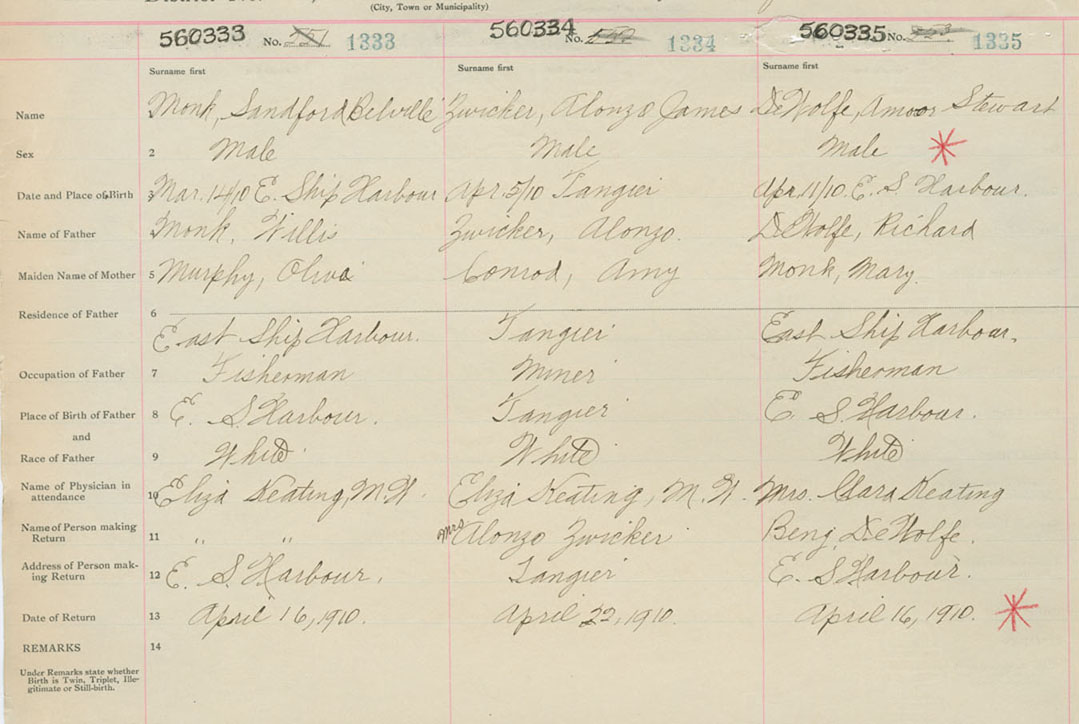 (City, Town or Municipality)
560333 No. 1333 560334 No. 1334 560335 No. 1335
Surname first Surname first Surname first
Name 1 Monk, Sandford Belville Zwicker, Alonzo James DeWolfe, Amoos Stewart
Sex 2 Male Male Male
Date and Place of Birth 3 Mar. 14/10 E. Ship Harbour Apr. 5/10 Tangier Apr. 11/10 E. S. Harbour.
Name of Father 4 Monk, Willis Zwicker, Alonzo. DeWolfe, Richard
Maiden Name of Mother 5 Murphy, Oliva Conrod, Amy Monk, Mary.
Residence of Father 6
East Ship Harbour. Tangier East Ship Harbour.
Occupation of Father 7 Fisherman Miner Fisherman
Place of Birth of Father 8 E. S Harbour. Tangier E. S Harbour.
and
Race of Father 9 White White White
Name of Physician in attendance 10 Eliza Keating, M.W. Eliza Keating, M.W. Mrs. Clara Keating
Name of Person making Return 11 " " Mrs Alonzo Zwicker Benj. DeWolfe.
Address of Person making Return 12 E. S. Harbour. Tangier E. S Harbour.
Date of Return 13 April 16, 1910. April 22, 1910. April 16, 1910.
REMARKS 14
Under Remarks state whether
Birth is Twin, Triplet, Ille-
gitimate or Still-birth.